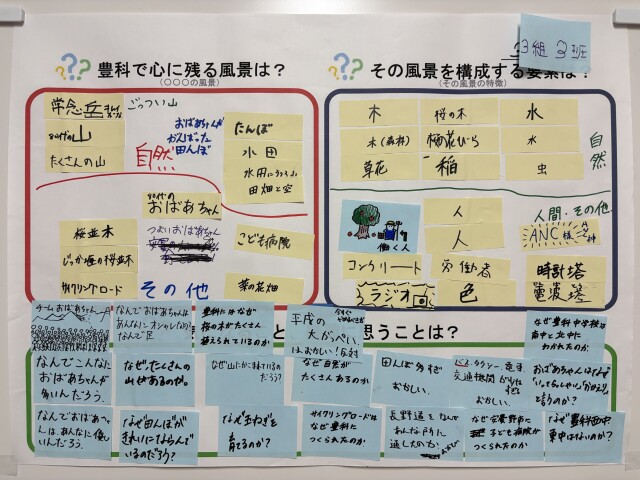 3組 3班
豊科で心に残る風景は?
(〇〇〇の風景)
常念岳
ごっつい山
山
たくさんの山
自然
おばあちゃんが
がんばった
田んぼ
たんぼ
水田
水田にうつる山
田畑と空
90代の
おばあちゃん
桜並木
じっか堰の桜並木
サイクリングロード
つよいおばあちゃん
その他
こども病院
菜の花畑
その風景を構成する要素は?
(その風景の特徴)
木
桜の木
水
木(森林)
桜の花びら
水
草花
稲
虫
自然
人間・その他
働く人
人
人
ANC様
コンクリート
労働者
時計塔
ラジオ
色
電波塔
思うことは?
チームおばあちゃん
なんでおばあちゃんは
あんなにオシャレなの
なんで
豊科にはなぜ
桜の木がたくさん
植えられているのか
平成の
大がっぺい
はおかしい!反対
なぜ豊科中学校は
南中と北中に
わかれたのか
なんでこんなに
おばあちゃんが
多いんだろう。
なぜ、たくさんの
山があるのか。
なぜ山にかこまれている
だろう?
なぜ自然が
たくさんあるのか
田んぼ多すぎ
おかしい
バス・タクシー、電車
交通機関
おかしい
おばあちゃんはなんで
「いってらっしゃい」「おかえり」と
言うのか?
なんでおばあちゃん
は、あんなに優し
いんだろう。
なぜ田んぼが
きれいにならんで
いるのだろう?
なぜ玉ねぎを
育てるのか?
サイクリングロードは
なぜ豊科に
つくられたのか
長野道をなんで
あんな所に
通したのか
なぜ安曇野市に
子ども病院が
つくられたのか
なぜ豊科西中
東中はないのか?